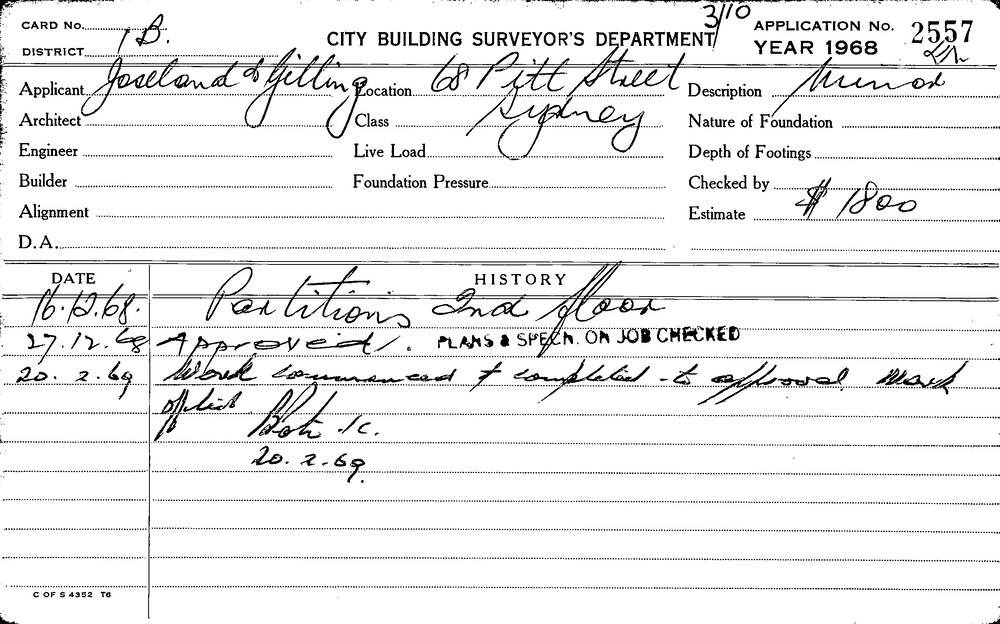 3/10
CARD No.
CITY BUILDING SURVEYOR'S DEPARTMENT
APPLICATION No. 2557
DISTRICT 1B.
YEAR 1968
Applicant Joseland & Gilling Location 68 Pitt Street Description Minor
Architect Class Sydney Nature of Foundation
Engineer Live Load Depth of Footings
Builder Foundation Pressure Checked by
Alignment Estimate $ 1800
D.A.
DATE HISTORY
16.12.68. Partitions 2nd floor
27.12.68 Approved. PLANS & SPECN. ON JOB CHECKED
20.2.69 Work commenced & completed to approval
20.2.69
C OF S 4352 T6